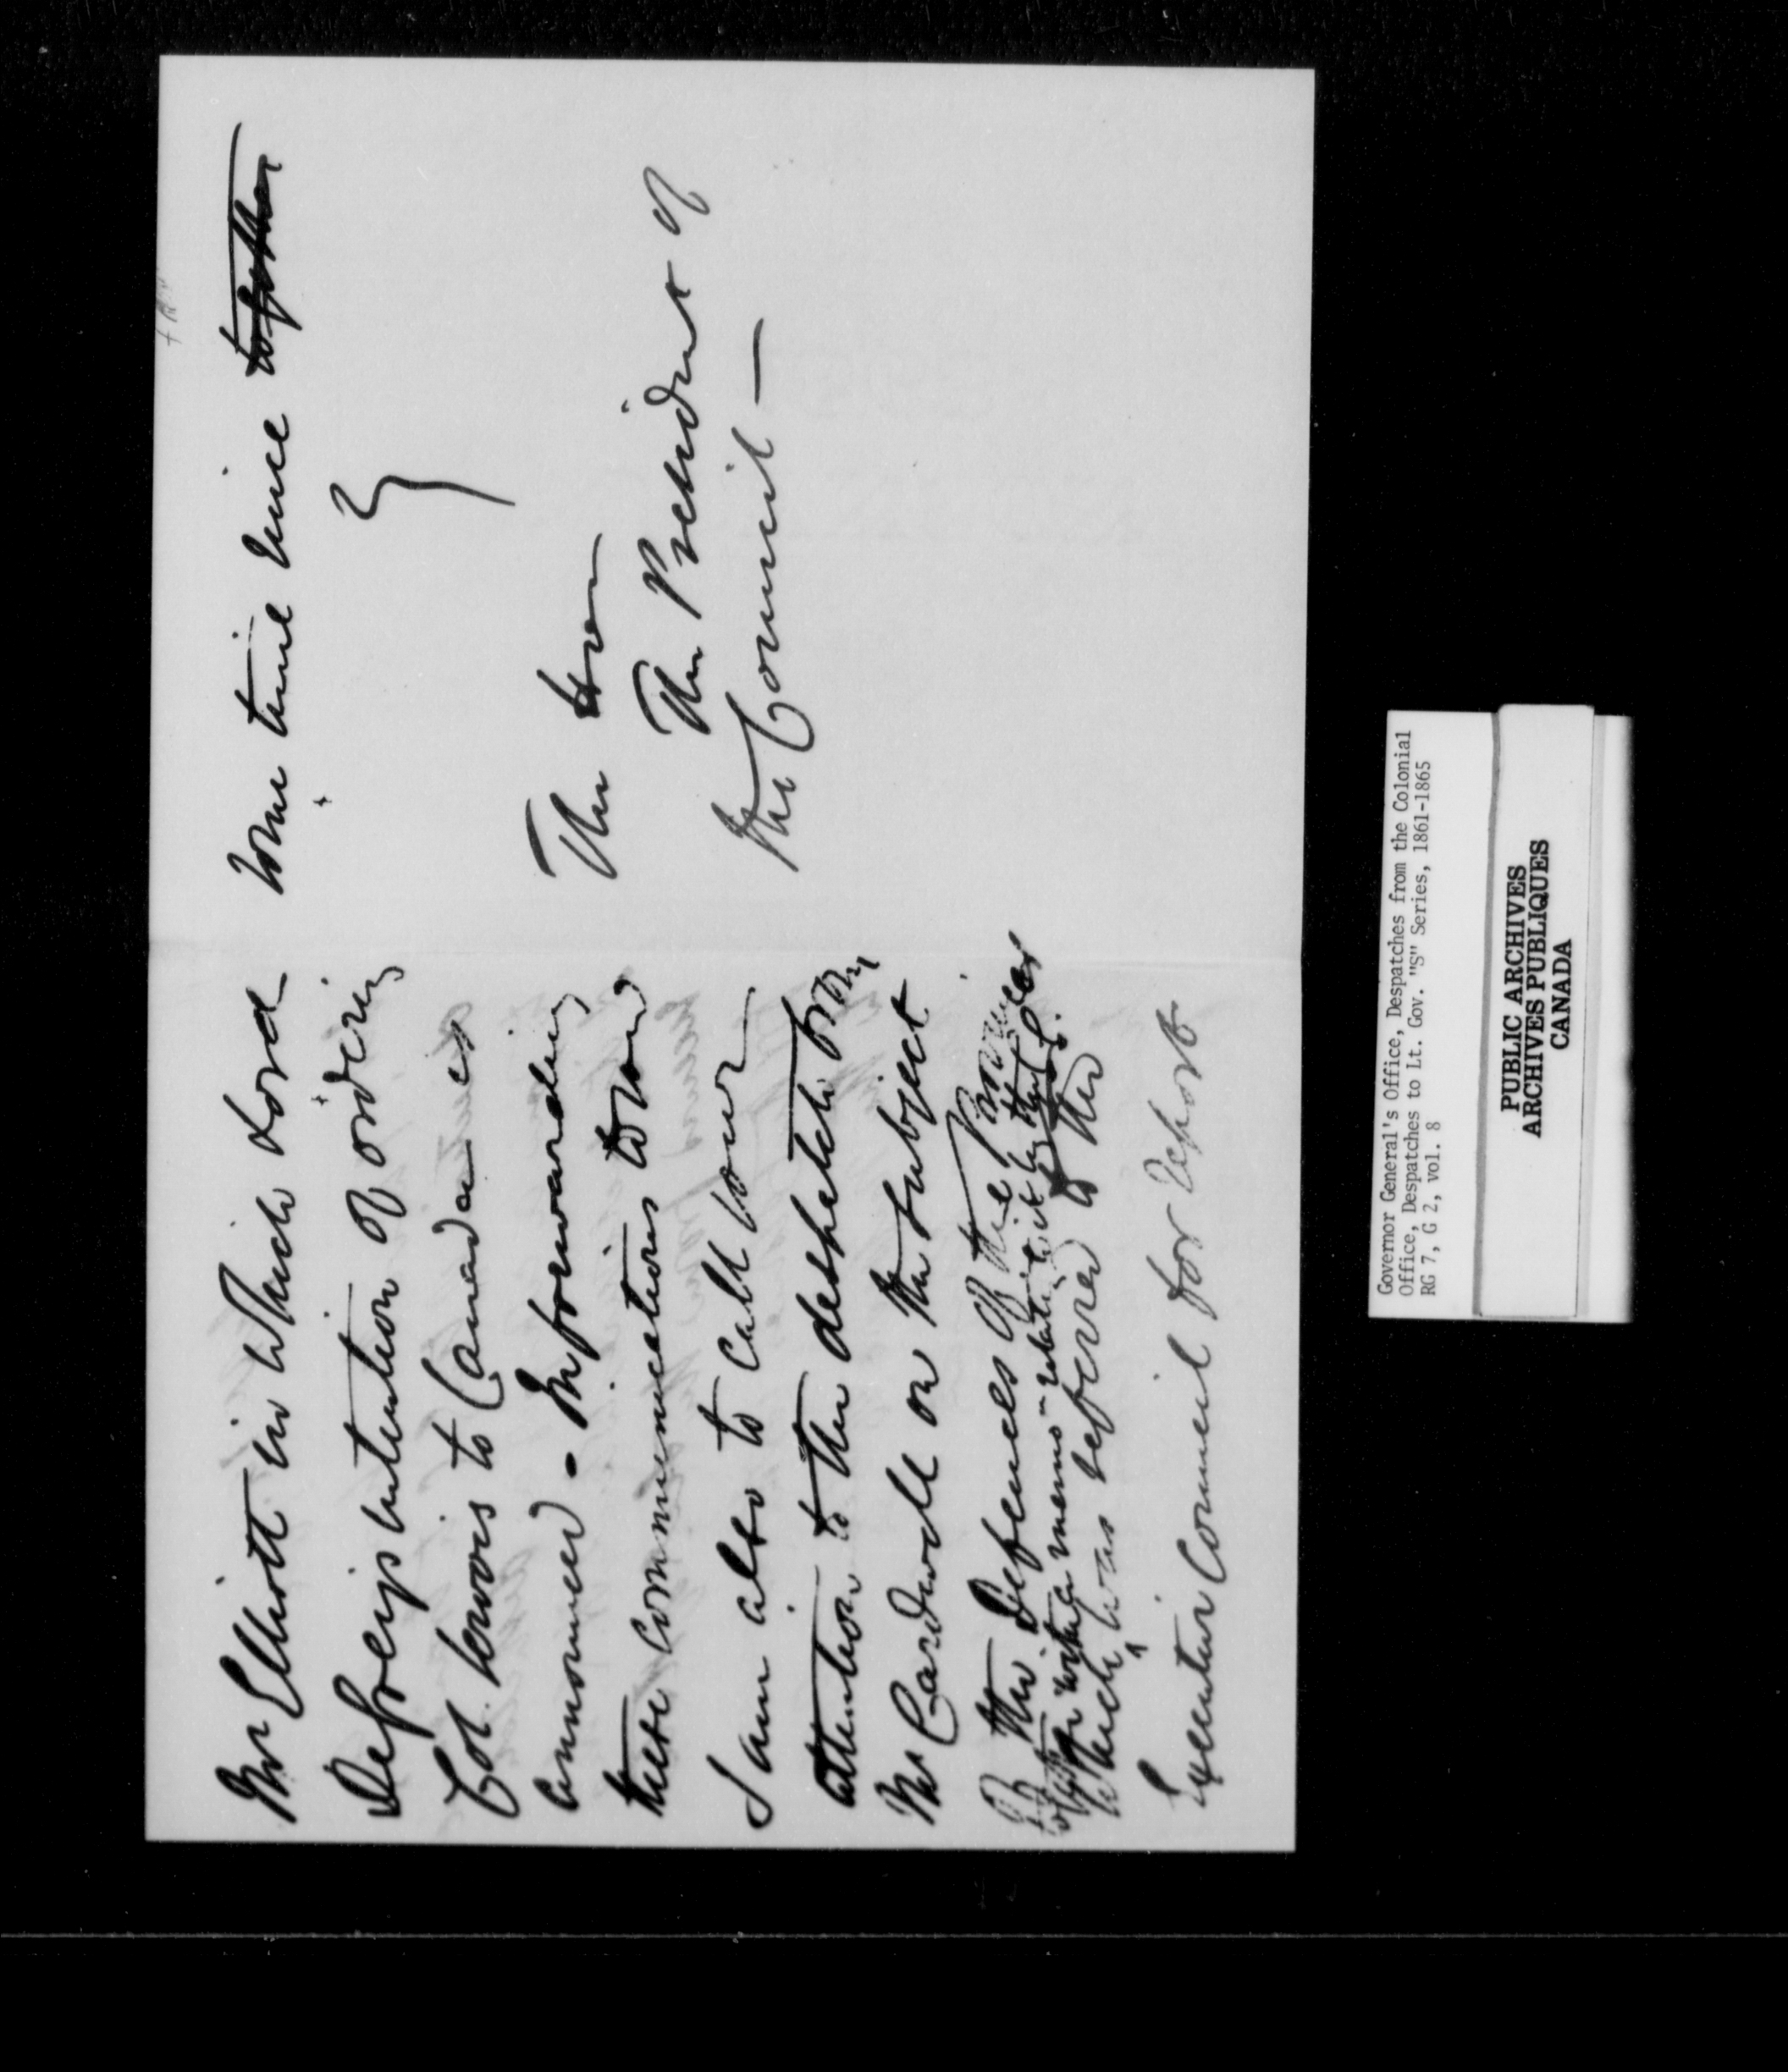 Mr Elliott in which Lord
Degreys intention of ordering
Col. Jervois to Canada is
announced - In forwarding
these communications to you
I am also to call your
attention to the despatch from
Mr Cardwell on the subject
of the Defences of the Province
together with a memo relative
which was referred to the
Executive Council for Report
some time since together
The Hon
The President of
the Council —
Governor General's Office, Despatches from the Colonial
Office, Despatches to Lt. Gov. "S" Series, 1861-1865
RG 7, G 2, vol. 8
PUBLIC ARCHIVES
ARCHIVES PUBLIQUES
CANADA